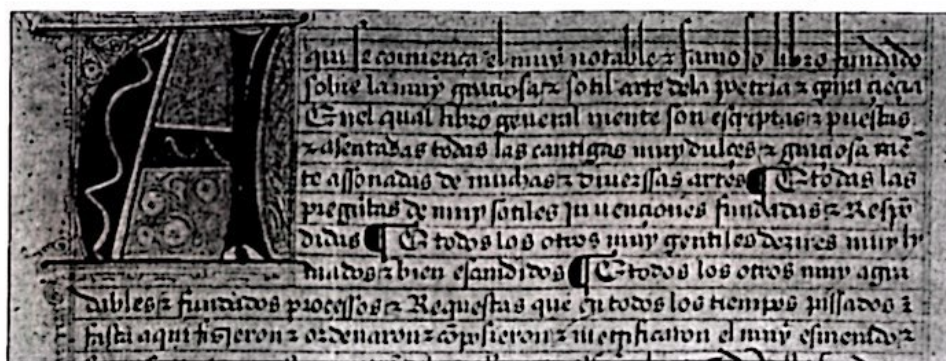 Aqui se comiença el muy notable & famoso libro fundido
sobre la muy graciosa & sotil arte dela poetria & gaya çiençia
En el qual libro general mente son escriptas & puestas
& asentadas todas las cantigas muy dulçes & graciosa mẽ
te assonadas de muchas & diuerssas artes ¶ E todas las
preguntas de muy sotiles ynuençiones fundadas & Respõ
didas ¶ E todos los otros muy gentiles dezires muy ly
mados & bien escandidos ¶ E todos los otros muy agra
dables & fundados proçessos & Requestas que en todos los tiempos passados &
fasta aqui fisieron & ordenaron & cõpusieron & metrificaron el muy esmerado &